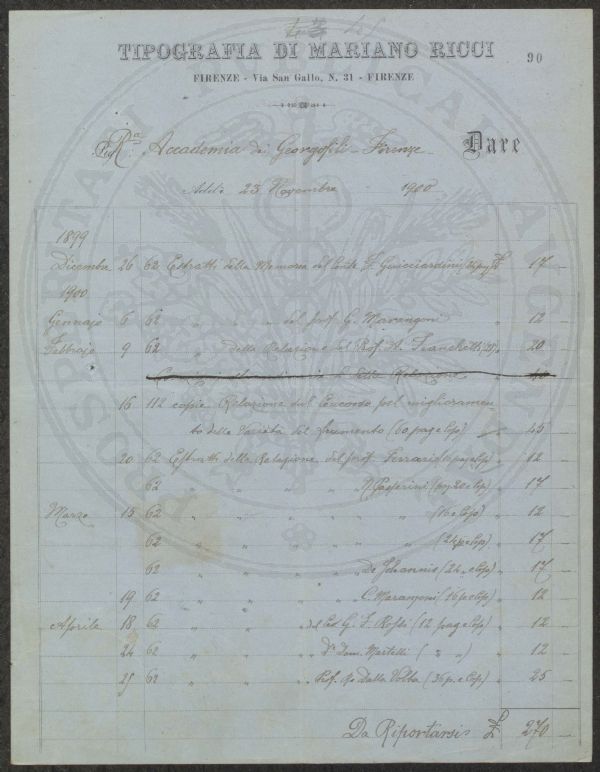 TIPOGRAFIA DI MARIANO RICCI
90
FIRENZE - Via San Gallo, N. 31 - FIRENZE
R.a Accademia di Georgofili - Firenze - Dare
Addì 23 Novembre 1900
1899
Dicembre 26 62 Estratti della Memoria del Conte F. Guicciardini £ 17 —
1900
Gennajo 6 62 " " " del prof. G. Marengoni " 12 —
Febbrajo 9 62 " della Relazione del Prof. A. Franchetti " 20 —
Relazione " 40 —
16 112 copie Relazione sul Concorso pel miglioramen-
to delle Varietà del frumento (60 pag e Cop) " 45 —
20 62 Estratti della Relazione del prof. Ferrari " 12 —
62 " " " " N. Passerini " 17 —
Marzo 15 62 " " " " " (16 e Cop) " 12 —
62 " " " " " (24 p e Cop) " 17 —
62 " " " " de Johannis (24 " e Cop) " 17 —
19 62 " " " " C. Marangoni (16 p e Cop) " 12 —
Aprile 18 62 " " " del G. F. Rossi (12 pag e Cop) " 12 —
24 62 " " " Dr Dom. Martelli ( " " ) " 12 —
25 62 " " " Prof. Dalla Volta (36 p. e Cop) " 25 —
Da Riportarsi £ 270 —